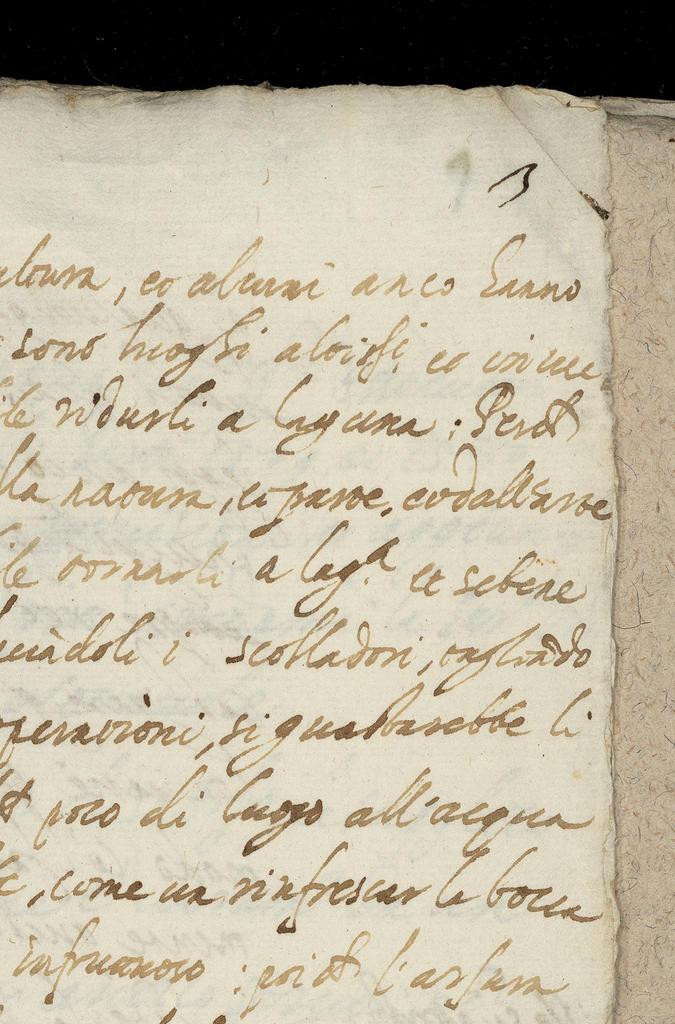 3
altura, et alcuni anco hanno
sono luoghi altissi, et
ile ridurli a laguna: Perch
lla natura, et parte, et dall'arte
ile tornarli a lag.a et sebene
i scolladori, tagliādo
operationi, si guastarebbe li
poco di luogo all'acqua
come un rinfrescar la bocca
infruttuoso: poich l'arsura